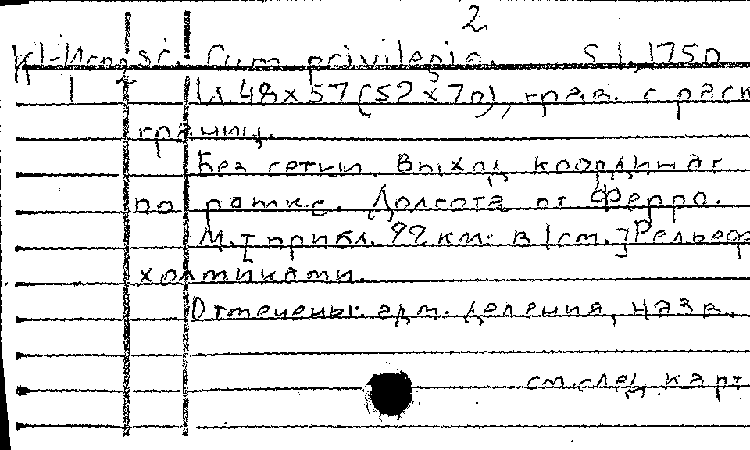 2
Cum privilegio. S l, 175
1 1 л 48 х 57 (52 х 70), грав. с раск
границ.
Без сетки. Выход координат
по рамке. Долгота от Ферро.
М. [прибл. 22 км: в 1 см.] Рельеф
холмиками.
Отмечены: адм. деления, назв.
см. след карт